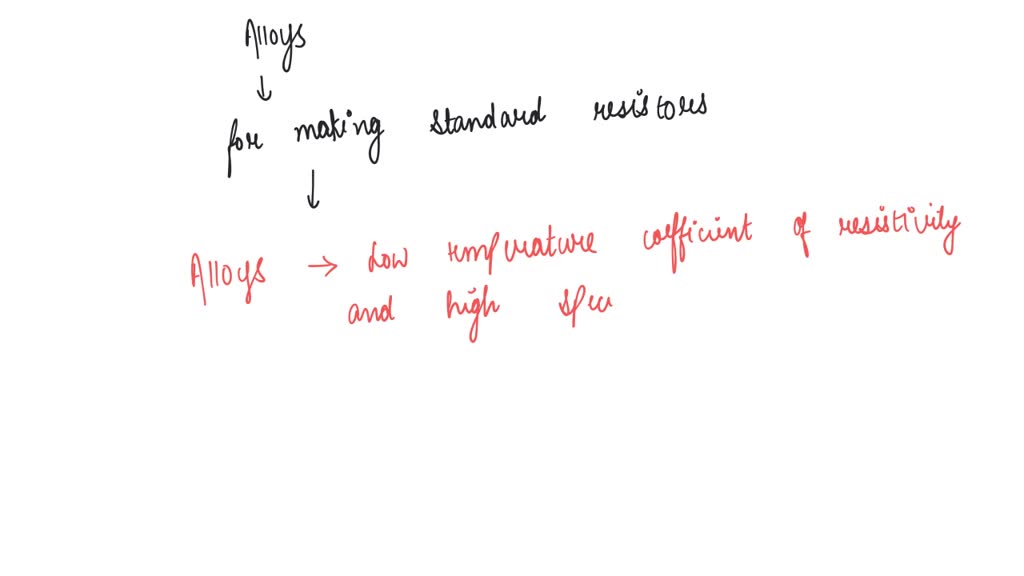 Alloys
↓
for making standard resistors
↓
Alloys → Low temperature coefficient of resistivity
and high spec